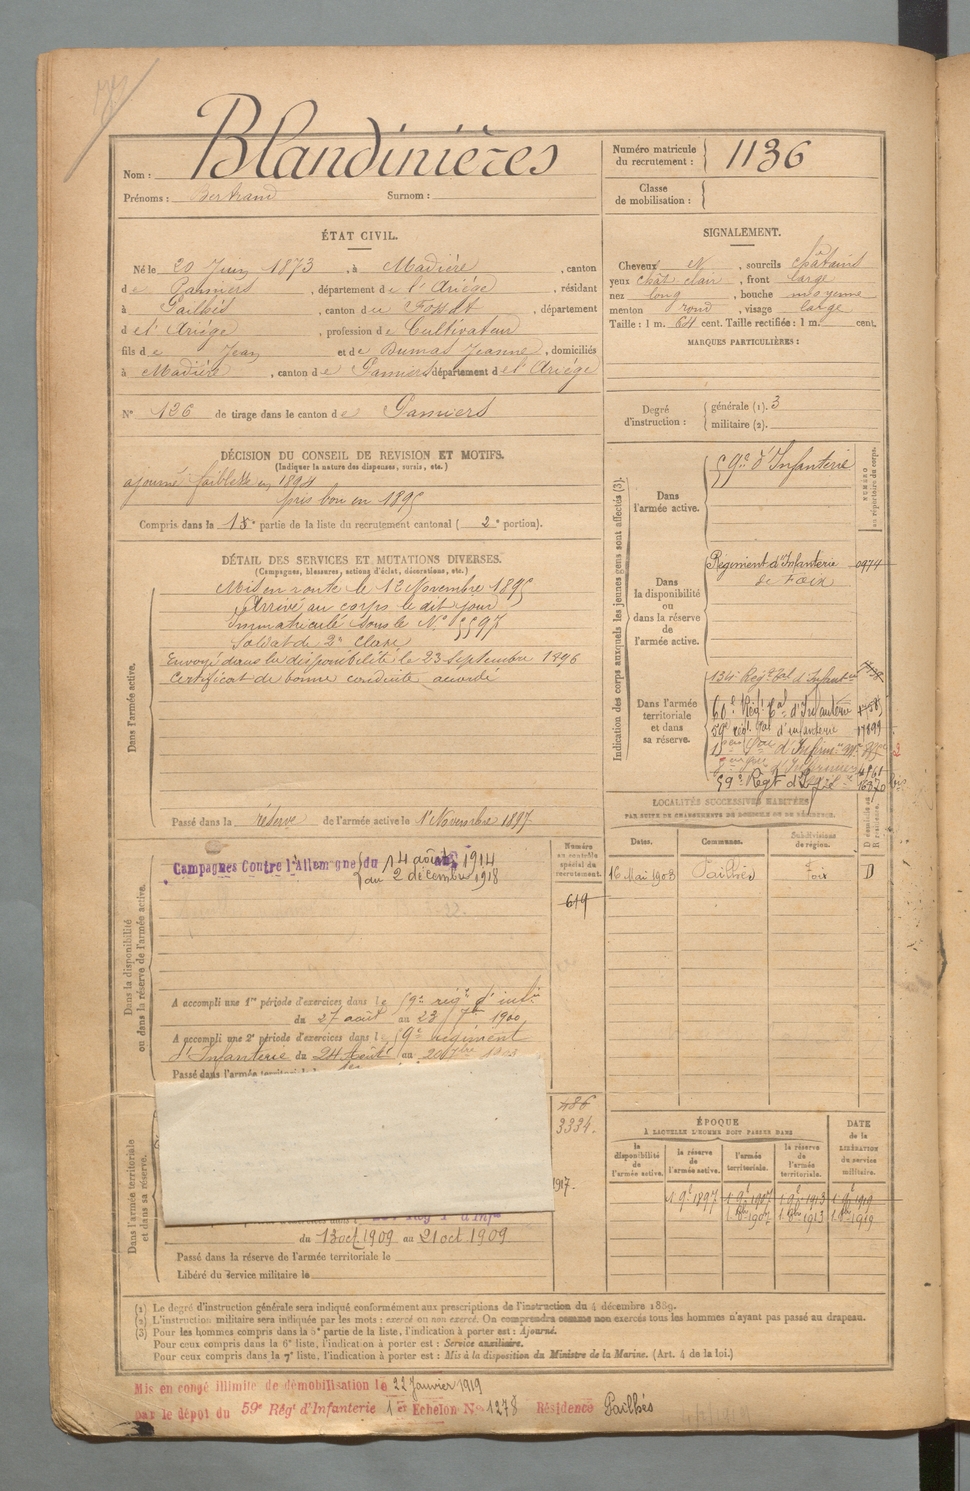 Blandinières
Nom :
Prénoms : Bertrand Surnom :
Numéro matricule
du recrutement : 1136
Classe
de mobilisation :
ÉTAT CIVIL.
Né le 20 Juin 1873, à Madière, canton
de Pamiers, département de l'Ariége, résidant
à Pailhés, canton du Fossat, département
de l'Ariége, profession de Cultivateur
fils de Jean et de Dumas Jeanne, domiciliés
à Madière, canton de Pamiers département de l'Ariége
N° 126 de tirage dans le canton de Pamiers
SIGNALEMENT.
Cheveux N, sourcils châtains
yeux chât clair, front large
nez long, bouche moyenne
menton rond, visage large
Taille : 1 m. 64 cent. Taille rectifiée : 1 m. cent.
MARQUES PARTICULIÈRES :
Degré
d'instruction :
générale (1). 3
militaire (2).
DÉCISION DU CONSEIL DE REVISION ET MOTIFS.
(Indiquer la nature des dispenses, sursis, etc.)
ajourné faiblesse en 1894
pris bon en 1895
Compris dans la partie de la liste du recrutement cantonal (2e portion).
DÉTAIL DES SERVICES ET MUTATIONS DIVERSES.
(Campagnes, blessures, actions d'éclat, décorations, etc.)
Dans l'armée active.
Mis en route le 12 Novembre 1895
Arrivé au corps le dit jour
Immatriculé sous le N° 5597
Soldat de 2e Classe
Envoyé dans la disponibilité le 23 Septembre 1896
Certificat de bonne conduite accordé
Passé dans la réserve de l'armée active le 1er Novembre 1897
Indication des corps auxquels les jeunes gens sont affectés (3).
NUMÉRO
au répertoire du corps.
Dans
l'armée active.
59e d'Infanterie
Dans
la disponibilité
ou
dans la réserve
de
l'armée active.
Régiment d'Infanterie 0974
de Foix
Dans l'armée
territoriale
et dans
sa réserve.
134e Régt tal d'Infanterie
60e Régt tal d'Infanterie
59e régt tal d'infanterie 17899
59e Regt d'Infie 16870
LOCALITÉS SUCCESSIVES HABITÉES
PAR SUITE DE CHANGEMENTS DE DOMICILE OU DE RÉSIDENCE.
Dates. Communes. Subdivisions
de région.
D domicile ou
R résidence.
16 Mai 1903 Pailhès Foix D
Dans la disponibilité
ou dans la réserve de l'armée active.
Campagnes Contre l'Allemagne du 14 août 1914
au 2 décembre 1918
Numéro
au contrôle
spécial du
recrutement.
619
A accompli une 1re période d'exercices dans le 59e régt d'infie
du 27 août au 23 7bre 1900
A accompli une 2e période d'exercices dans le 59e régiment
d'Infanterie du 24 Août au 20 7bre 1903
Passé dans l'armée territoriale le
Dans l'armée territoriale
et dans sa réserve.
486
3334.
1917.
du 13 oct 1909 au 21 oct 1909
Passé dans la réserve de l'armée territoriale le
Libéré du service militaire le
ÉPOQUE
À LAQUELLE L'HOMME DOIT PASSER DANS
DATE
de la
LIBÉRATION
du service
militaire.
la
disponibilité
de
l'armée active.
la réserve
de
l'armée active.
l'armée
territoriale.
la réserve
de
l'armée
territoriale.
1 9e 1897 1 9e 1907 1 9e 1913 1 9e 1919
1 8bre 1907 1 8bre 1913 1 8bre 1919
(1) Le degré d'instruction générale sera indiqué conformément aux prescriptions de l'instruction du 4 décembre 1889.
(2) L'instruction militaire sera indiquée par les mots : exercé ou non exercé. On comprendra comme non exercés tous les hommes n'ayant pas passé au drapeau.
(3) Pour les hommes compris dans la 5e partie de la liste, l'indication à porter est : Ajourné.
Pour ceux compris dans la 6e liste, l'indication à porter est : Service auxiliaire.
Pour ceux compris dans la 7e liste, l'indication à porter est : Mis à la disposition du Ministre de la Marine. (Art. 4 de la loi.)
Mis en congé illimité de démobilisation le 22 Janvier 1919
par le dépôt du 59e Régt d'Infanterie 1er Echelon N° 1278 Résidence Pailhès